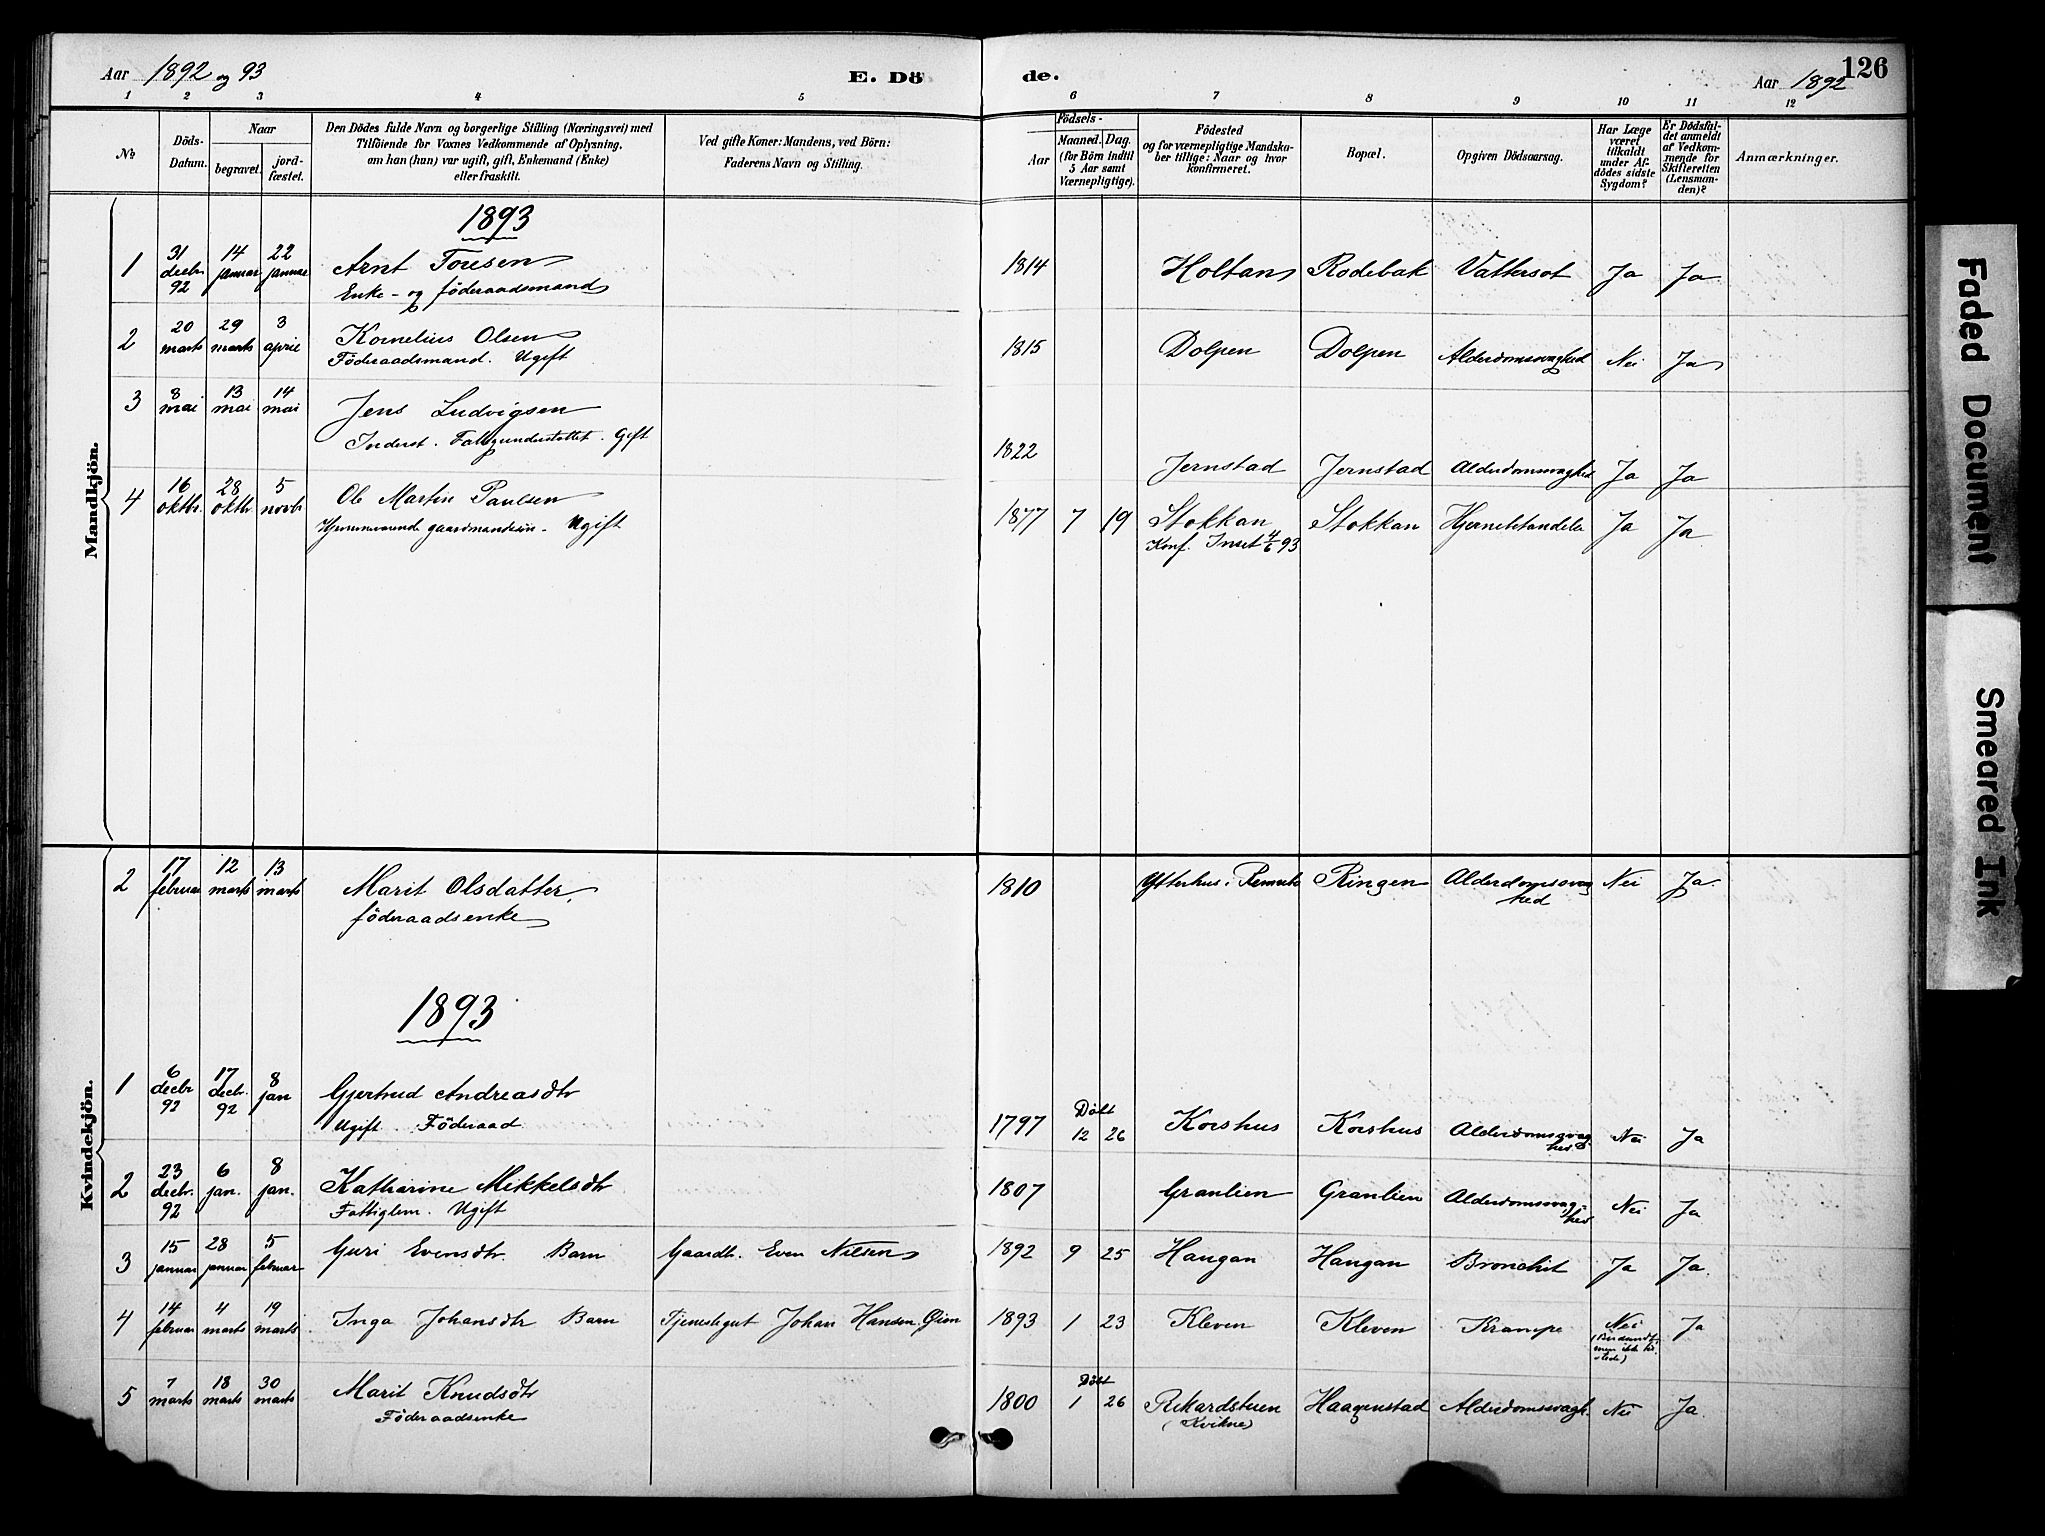 Aar 1892 og 93
E. Dö
de.
Aar 1892
126
1 2 3 4 5 6 7 8 9 10 11 12
No
Döds-Datum.
Naar
begravet.
jord-fæstet.
Den Dödes fulde Navn og borgerlige Stilling (Næringsvei) med
Tilföiende for Voxnes Vedkommende af Oplysning,
om han (hun) var ugift, gift, Enkemand (Enke)
eller fraskilt.
Ved gifte Koner: Mandens, ved Börn:
Faderens Navn og Stilling.
Födsels-
Aar
Maaned. Dag.
(for Börn indtil
5 Aar samt
Værnepligtige).
Födested
og for værnepligtige Mandska-
ber tillige: Naar og hvor
konfirmeret.
Bopæl.
Opgiven Dödsaarsag.
Har Læge
været
tilkaldt
under Af-
dödes sidste
Sygdom?
Er Dödsfal-
det anmeldt
af Vedkom-
mende for
Skifteretten
(Lensman-
den)?
Anmærkninger.
Mandkjön.
1893
1 31 decbr 92 14 januar 22 januar Arnt Toresen 1814 Holtan Rodebak Vattersot Ja Ja
Enke- og föderaadsmand
2 20 marts 29 marts 3 april Kornelius Olsen 1815 Dolpen Dolpen Alderdomssvaghed Nei Ja
Föderaadsmand. Ugift
3 8 mai 13 mai 14 mai Jens Ludvigsen
Inderst. Fattigunderstöttet. Gift 1822 Jernstad Jernstad Alderdomssvaghed Ja Ja
4 16 oktbr. 28 oktbr 5 novbr Ole Martin Paulsen 1877 7 19 Stokkan Stokkan Hjernebetændelse Ja Ja
Hjemmeværende gaardmandssön. Ugift Konf. Inset 4/6 93
Kvindekjön.
2 17 februar 12 marts 13 marts Marit Olsdatter, 1810 Ytterhus i Rennebu Ringen Alderdomssvaghed Nei Ja.
föderaadsenke
1893
1 6 decbr 92 17 decbr. 92 8 jan Gjertrud Andreasdtr
Ugift. Föderaad 1797 Döbt 12 26 Korshus Korshus Alderdomssvaghed Nei Ja
2 23 decbr. 92 6 jan. 8 jan. Katharine Mikkelsdtr 1807 Granlien Granlien Alderdomssvaghed Nei Ja
Fattiglem. Ugift
3 15 januar 28 januar 5 februar Guri Evensdtr. Barn Gaardb. Even Nilsen 1892 9 25 Haugan Haugan Bronchit Ja Ja.
4 14 februar 4 marts 19 marts Inga Johansdtr Barn Tjenestegut Johan Hansen, 1893 1 23 Kleven Kleven Krampe Nei Ja
5 7 marts 18 marts 30 marts Marit Knudsdtr 1800 Döbt 1 26 Rikardstuen Haagenstad Alderdomssvagh. Nei Ja.
Föderaadsenke (Kvikne)
Faded Document
Smeared Ink